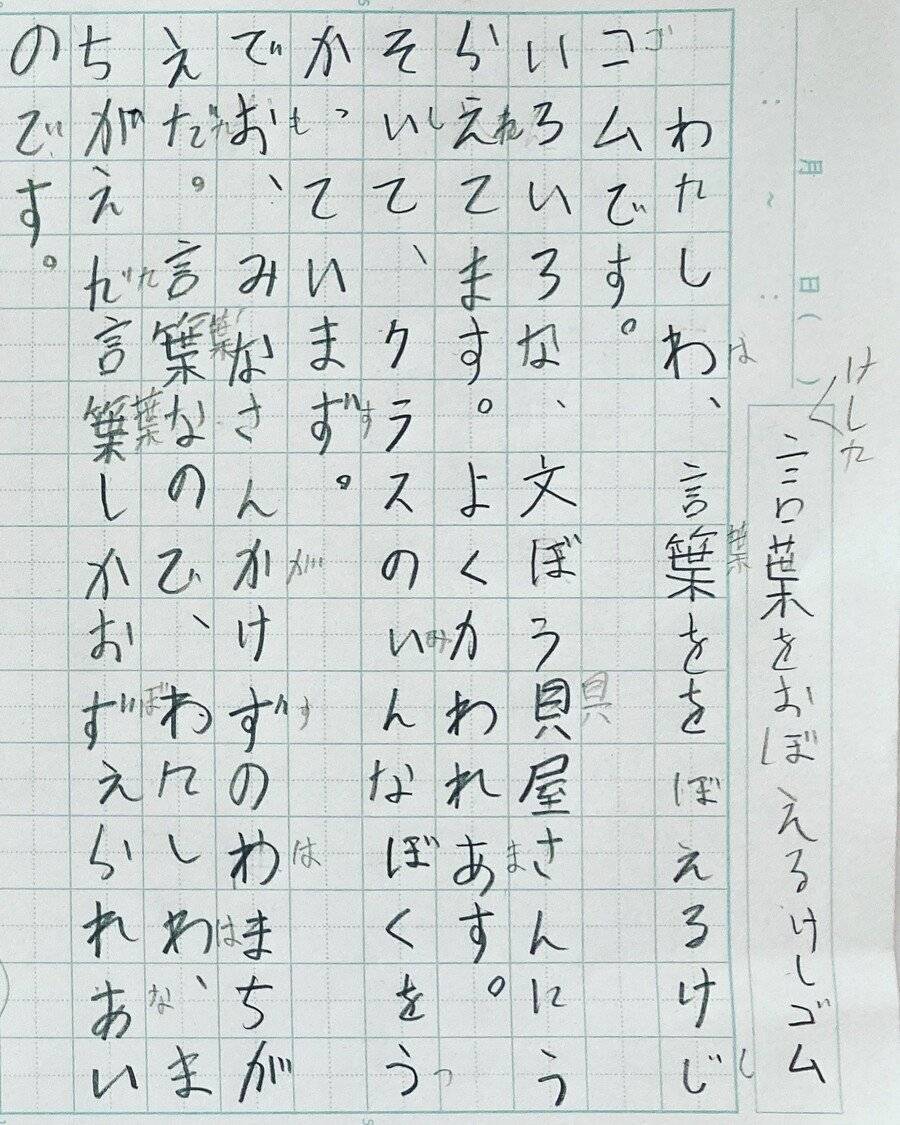 月 日( )
けした
言葉をおぼえるけしゴム
わたしわ、言葉ををぼえるけじ
は 葉 し
コムです。
ゴ
いろいろな、文ぼう具屋さんにう
具
らえてます。よくかわれあす。
れ ま
そいてて、クラスのいんなぼくをう
し み つ
かっています。
っ す
でお、みなさん。かけずのわまちが
も が す は
えだ。言葉なので、わたしわ、ま
た 葉 は
ちがえだ言葉しかおずえられあい
た 葉 ぼ な
のです。